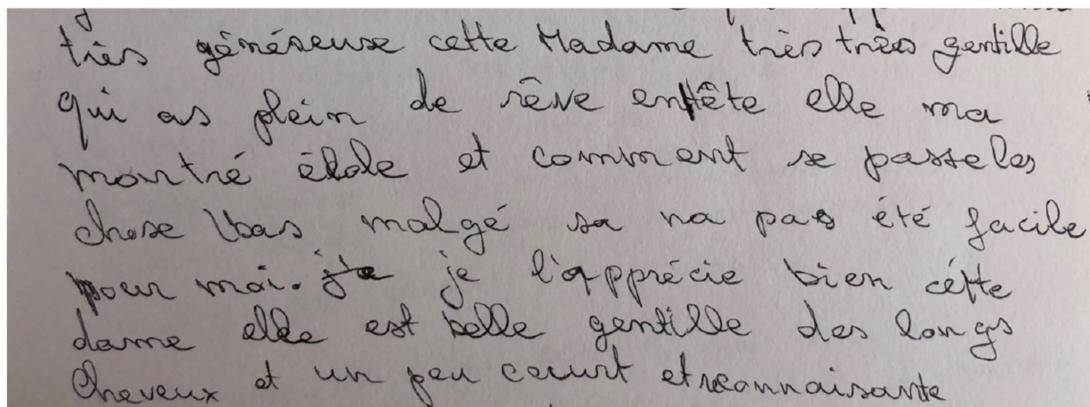 très généseuse cette Madame très très gentille
qui as plein de rêve entête elle ma
montré école et comment se passe les
chose bas malgé sa na pas été facile
pour moi. je l'apprécie bien cétte
dame elle est belle gentille des longs
cheveux et un peu court et reconnaisante